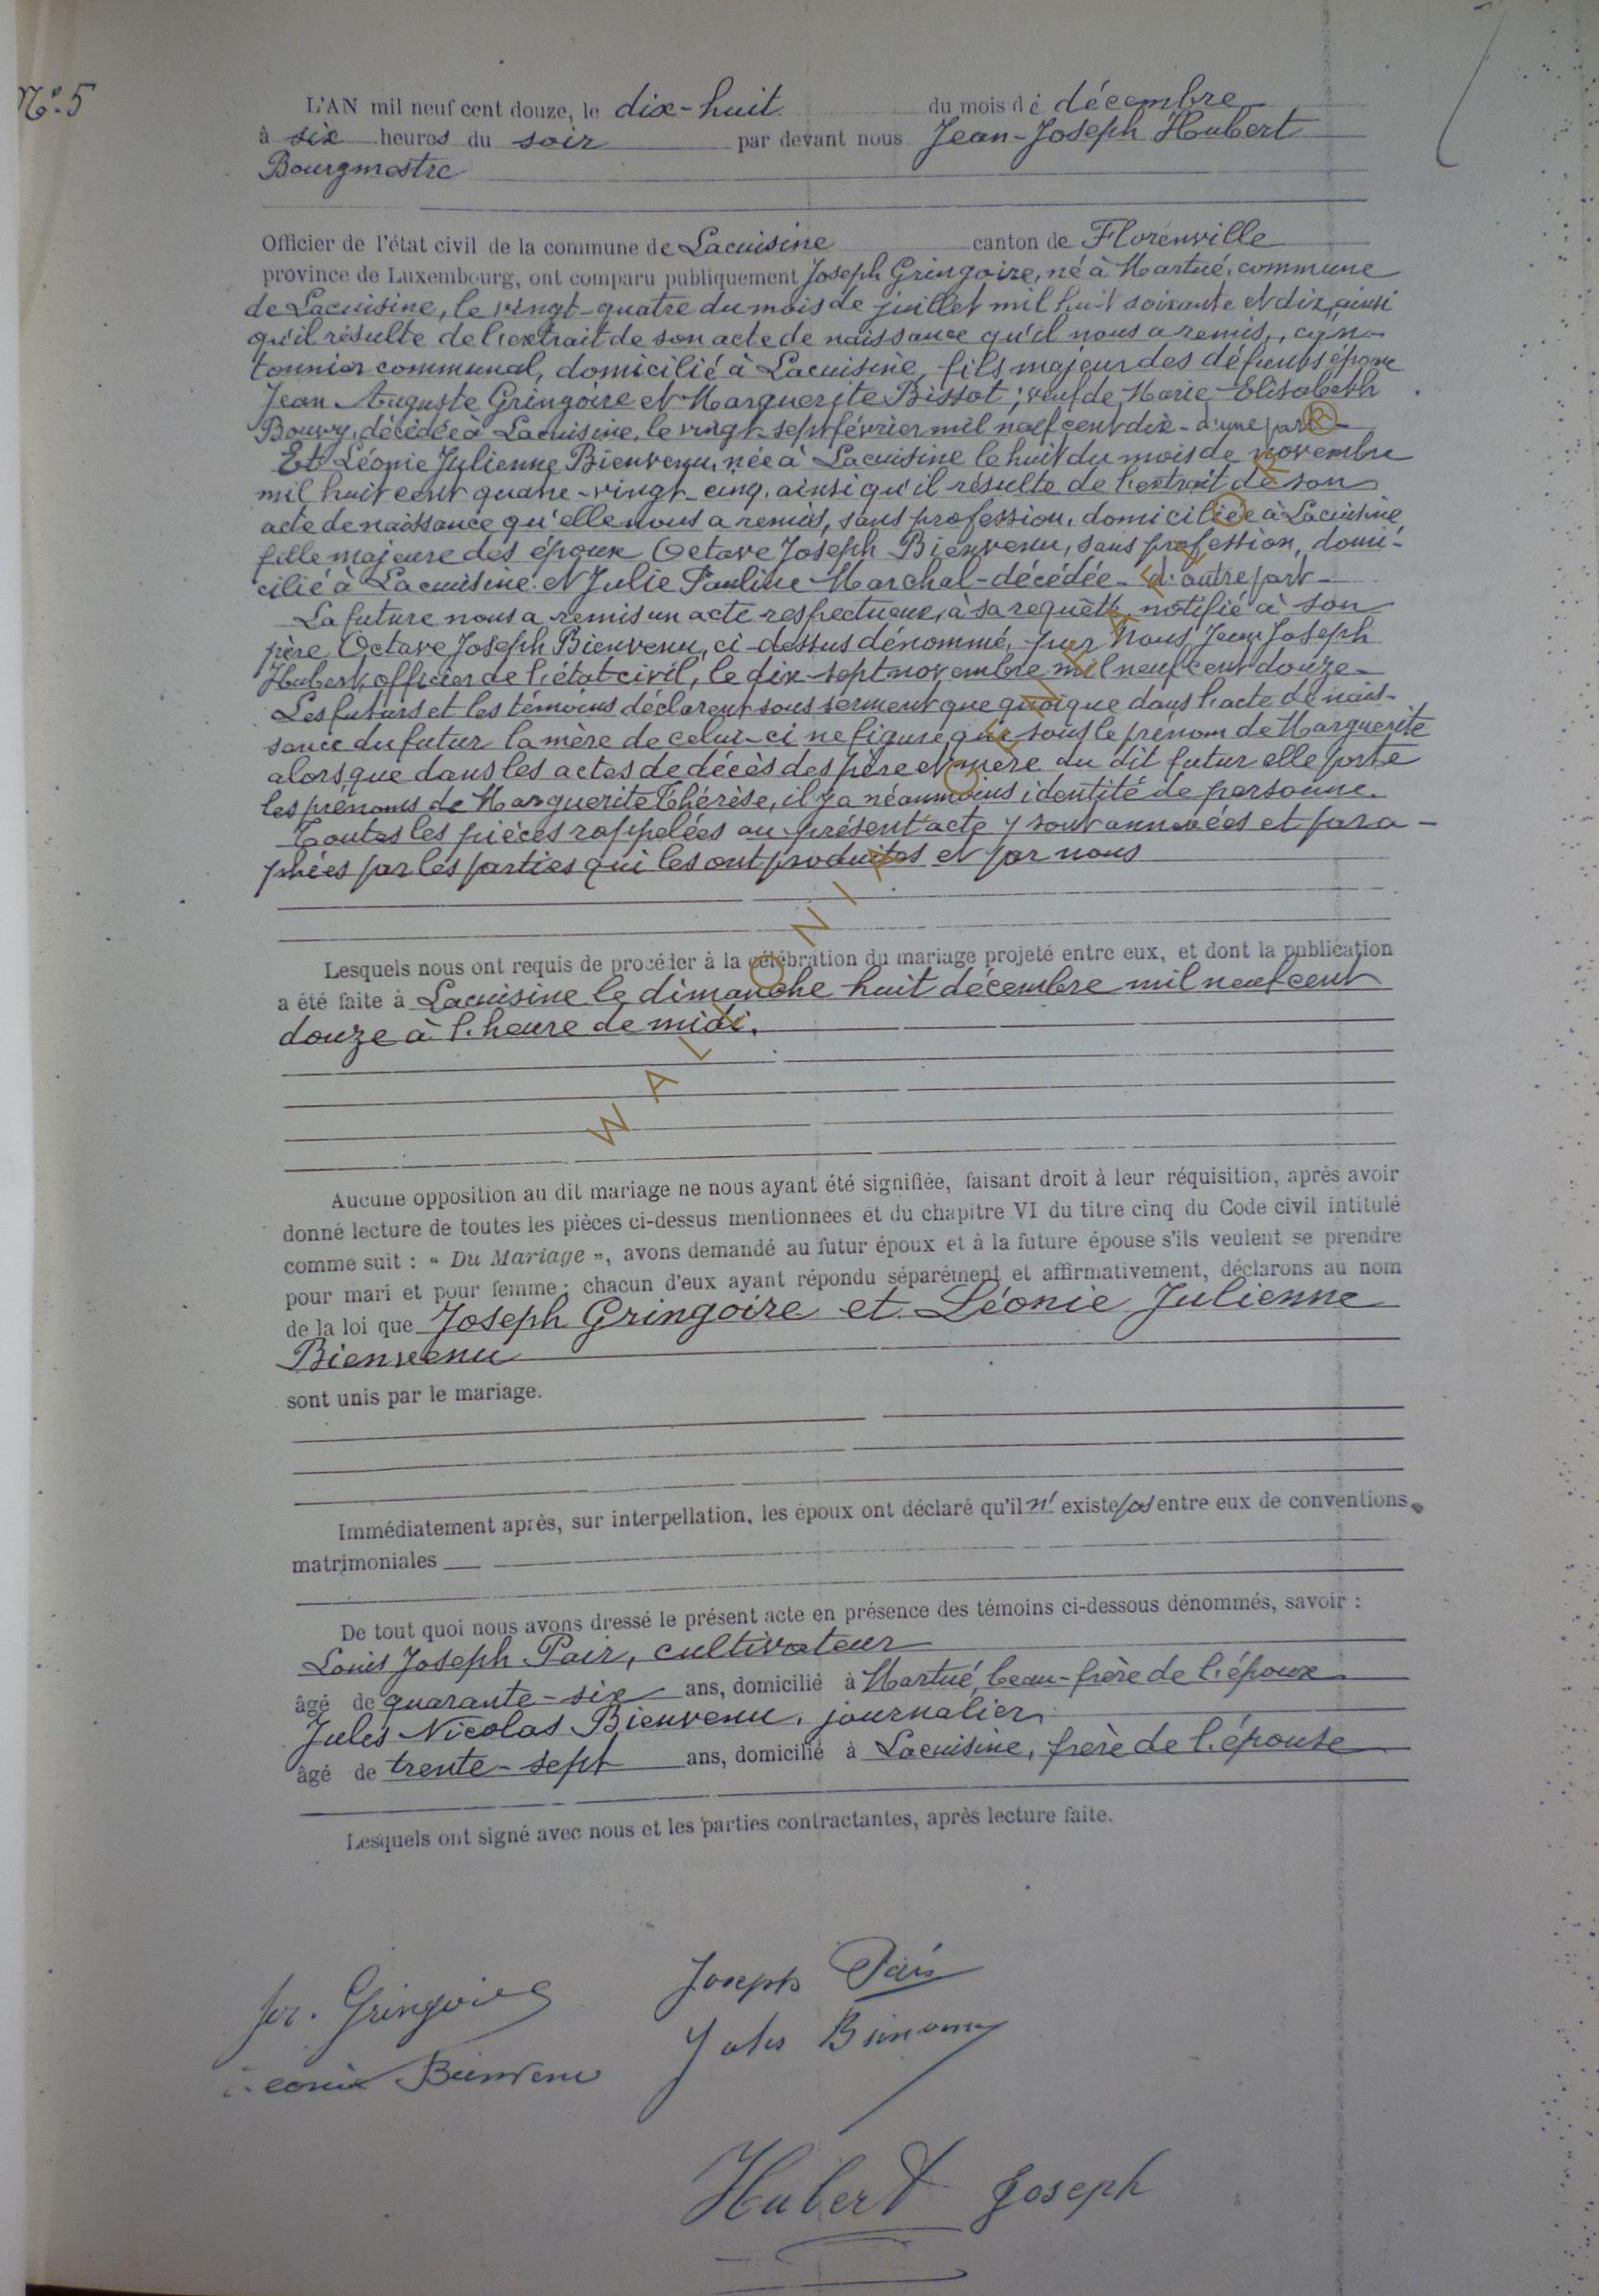 N° 5
L'AN mil neuf cent douze, le dix-huit du mois de décembre
à six heures du soir par devant nous Jean-Joseph Hubert
Bourgmestre
Officier de l'état civil de la commune de Lacuisine canton de Florenville
province de Luxembourg, ont comparu publiquement Joseph Gringoire, né à Martué, commune
de Lacuisine, le vingt-quatre du mois de juillet mil huit soixante et dix, ainsi
qu'il résulte de l'extrait de son acte de naissance qu'il nous a remis, can-
tonnier communal, domicilié à Lacuisine, fils majeur des défunts époux
Jean Auguste Gringoire et Marguerite Bissot; veuf de Marie-Elisabeth
Bouvy, décédée à Lacuisine, le vingt-sept février mil neuf cent dix - d'une part -
Et Léonie Julienne Bienvenu, née à Lacuisine le huit du mois de novembre
mil huit cent quatre-vingt-cinq, ainsi qu'il résulte de l'extrait de son
acte de naissance qu'elle nous a remis, sans profession, domiciliée à Lacuisine,
fille majeure des époux Octave Joseph Bienvenu, sans profession, domi-
cilié à Lacuisine et Julie Pauline Marchal - décédée - d'autre part -
La future nous a remis un acte respectueux, à sa requête, notifié à son
père Octave Joseph Bienvenu, ci-dessus dénommé, par Nous Jean Joseph
Hubert, officier de l'état-civil, le dix-sept novembre mil neuf cent douze -
Les futurs et les témoins déclarent sous serment que quoique dans l'acte de nais-
sance du futur la mère de celui-ci ne figure que sous le prénom de Marguerite
alors que dans les actes de décès des père et mère du dit futur elle porte
les prénoms de Marguerite Thérèse, il y a néanmoins identité de personne.
Toutes les pièces rappelées au présent acte y sont annexées et para-
phées par les parties qui les ont produites et par nous
Lesquels nous ont requis de procéder à la célébration du mariage projeté entre eux, et dont la publication
a été faite à Lacuisine le dimanche huit décembre mil neuf cent
douze à l'heure de midi.
WALLONIA GENEALOGY
Aucune opposition au dit mariage ne nous ayant été signifiée, faisant droit à leur réquisition, après avoir
donné lecture de toutes les pièces ci-dessus mentionnées et du chapitre VI du titre cinq du Code civil intitulé
comme suit : « Du Mariage », avons demandé au futur époux et à la future épouse s'ils veulent se prendre
pour mari et pour femme ; chacun d'eux ayant répondu séparément et affirmativement, déclarons au nom
de la loi que Joseph Gringoire et Léonie Julienne
Bienvenu
sont unis par le mariage.
Immédiatement après, sur interpellation, les époux ont déclaré qu'il n' existe pas entre eux de conventions
matrimoniales
De tout quoi nous avons dressé le présent acte en présence des témoins ci-dessous dénommés, savoir :
Louis Joseph Pair, cultivateur
âgé de quarante-six ans, domicilié à Martué, beau-frère de l'époux
Jules Nicolas Bienvenu, journalier
âgé de trente-sept ans, domicilié à Lacuisine, frère de l'épouse
Lesquels ont signé avec nous et les parties contractantes, après lecture faite.
Jos. Gringoire
Joseph Pair
Jules Bienvenu
Léonie Bienvenu
Hubert Joseph